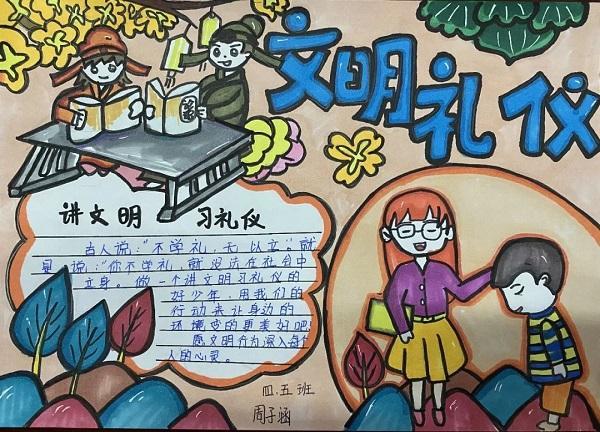 文明礼仪
讲文明 习礼仪
古人说："不学礼，无以立。"就
是说："你不学礼，就没法在社会中
立身。做一个讲文明习礼仪的
好少年，用我们的
行动来让身边的
环境变的更美好吧
愿文明行为深入每个
人的心灵。
四.五班
周子涵